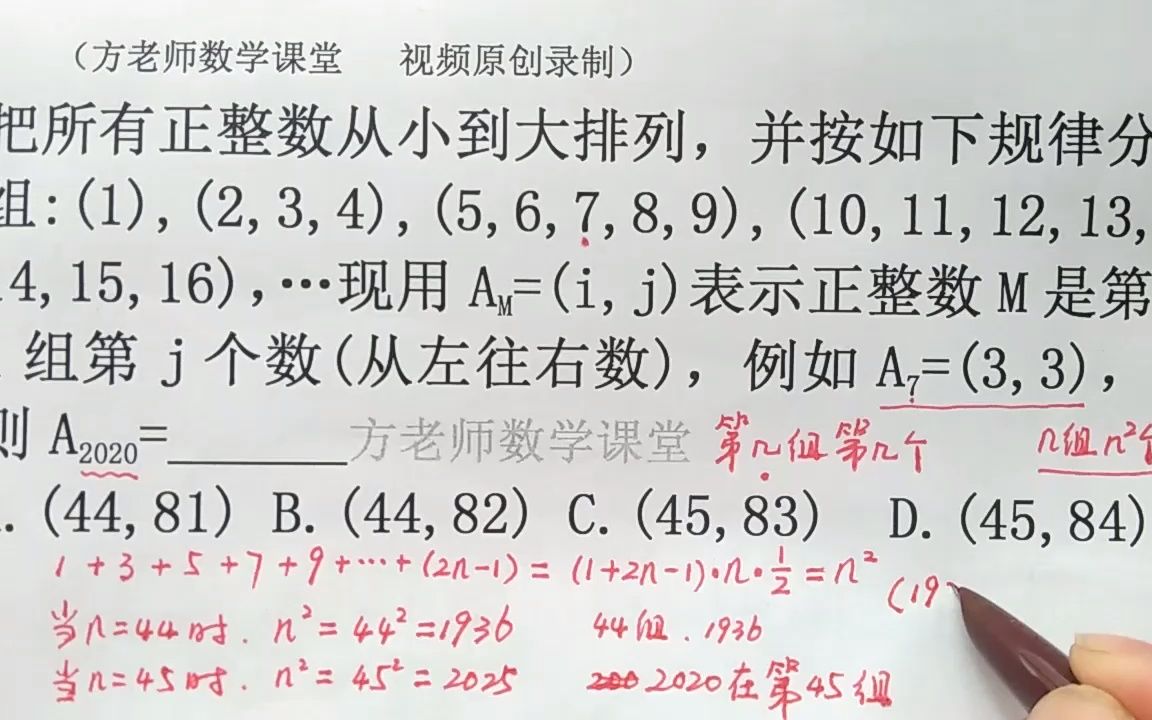 （方老师数学课堂 视频原创录制）
把所有正整数从小到大排列，并按如下规律分
组:(1),(2,3,4),(5,6,7,8,9),(10,11,12,13,
14,15,16),…现用 A_M=(i,j)表示正整数 M 是第
组第 j 个数(从左往右数)，例如 A_7=(3,3)，
则 A_2020=______方老师数学课堂 第几组第几个 n组n²个
. (44,81) B. (44,82) C. (45,83) D. (45,84)
1+3+5+7+9+…+(2n-1)=(1+2n-1)·n·1/2=n² (19
当n=44时. n²=44²=1936 44组.1936
当n=45时. n²=45²=2025 2020在第45组